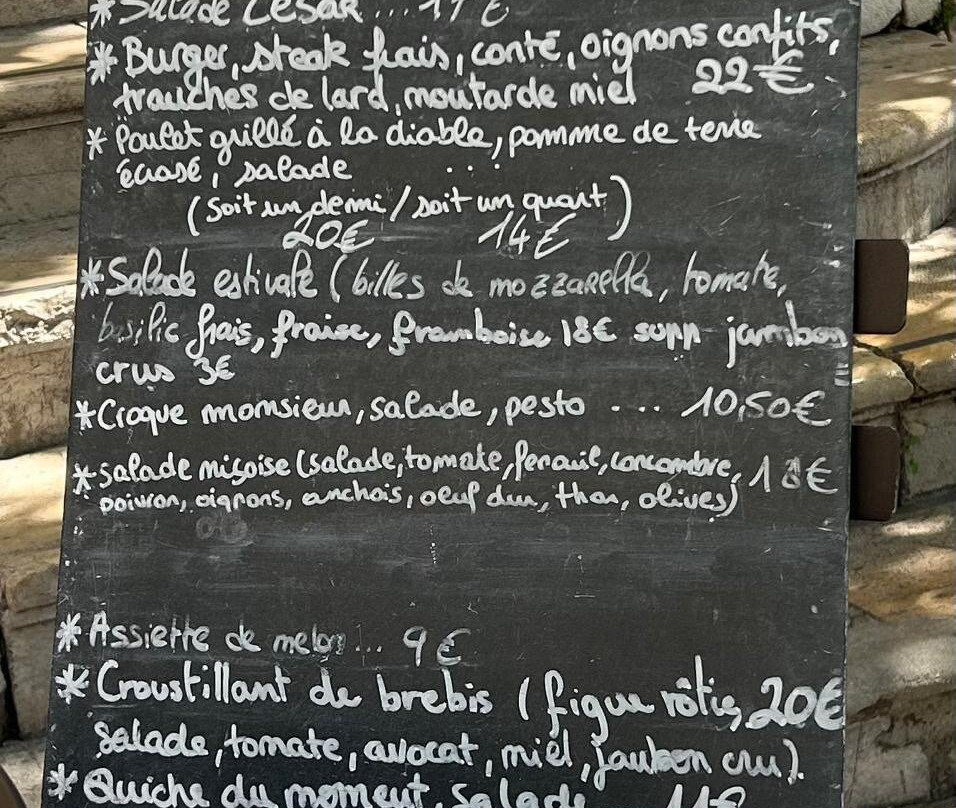 * Salade César ... 17 €
* Burger, steak frais, conté, oignons confits,
trauches de lard, moutarde miel 22€
* Poulet grillé à la diable, pomme de terre
écrasé, salade ...
(Soit un demi / soit un quart)
20€ 14€
* Salade estivale (billes de mozzarella, tomate,
basilic frais, fraise, framboise 18€ supp jambon
crus 3€
* Croque momsieur, salade, pesto ... 10,50€
* salade niçoise (salade, tomate, fenouil, concombre, 18€
poivron, oignons, anchois, oeuf dur, thon, olives)
* Assiette de melon ... 9€
* Croustillant de brebis (figue rôtis, 20€
salade, tomate, avocat, miel, jambon cru).
* Quiche du moment, salade 11€